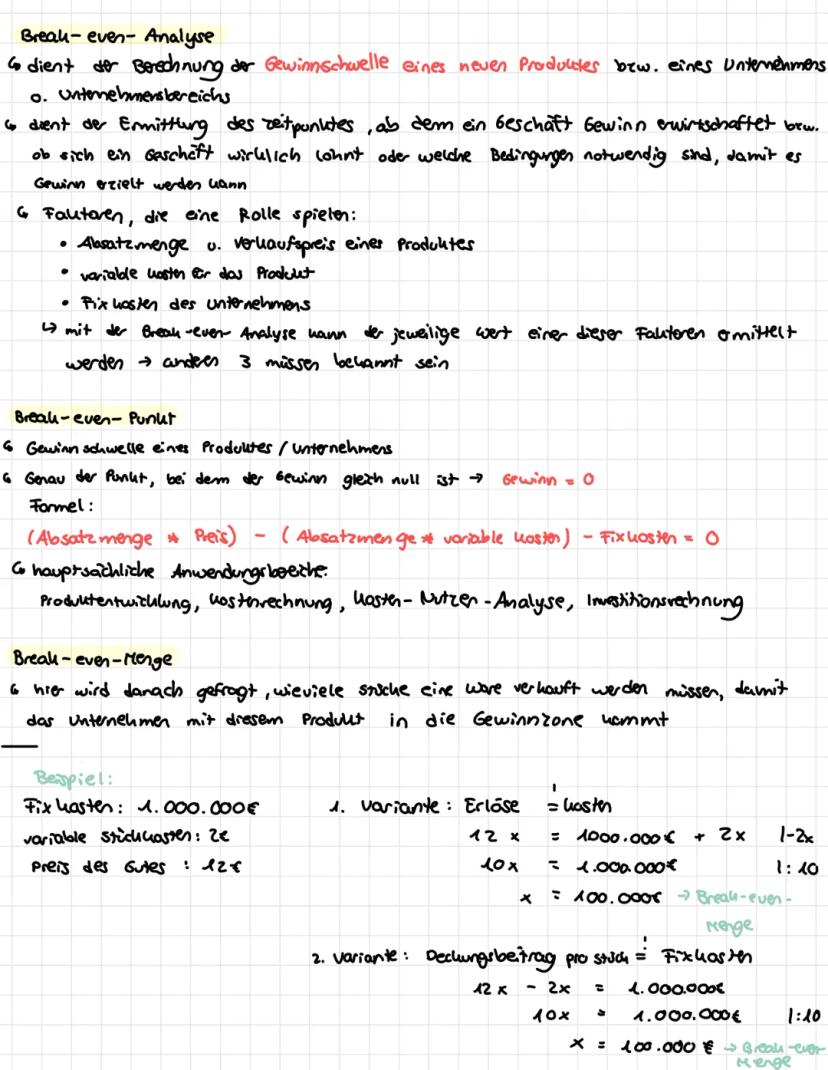 Break-even-Analyse
↳ dient der Berechnung der Gewinnschwelle eines neuen Produktes bzw. eines Unternehmens
o. Unternehmensbereichs
↳ dient der Ermittlung des Zeitpunktes, ab dem ein Geschäft Gewinn erwirtschaftet bzw.
ob sich ein Geschäft wirklich lohnt oder welche Bedingungen notwendig sind, damit es
Gewinn erzielt werden kann
↳ Faktoren, die eine Rolle spielen:
• Absatzmenge u. Verkaufspreis eines Produktes
• variable Kosten für das Produkt
• Fixkosten des Unternehmens
↳ mit der Break-even-Analyse kann der jeweilige Wert einer dieser Faktoren ermittelt
werden → anderen 3 müssen bekannt sein
Break-even-Punkt
↳ Gewinnschwelle eines Produktes / Unternehmens
↳ Genau der Punkt, bei dem der Gewinn gleich null ist → Gewinn = 0
Formel:
(Absatzmenge * Preis) - (Absatzmenge * variable Kosten) - Fixkosten = 0
↳ hauptsächliche Anwendungsbereiche:
Produktentwicklung, Kostenrechnung, Kosten-Nutzen-Analyse, Investitionsrechnung
Break-even-Menge
↳ hier wird danach gefragt, wieviele Stücke eine Ware verkauft werden müssen, damit
das Unternehmen mit diesem Produkt in die Gewinnzone kommt
Beispiel:
Fixkosten: 1.000.000€
variable Stückkosten: 2€
Preis des Gutes : 12€
1. Variante: Erlöse =! Kosten
12x = 1000.000€ + 2x |-2x
10x = 1.000.000€ |:10
x = 100.000€ → Break-even-
Menge
2. Variante: Deckungsbeitrag pro Stück =! Fixkosten
12x - 2x = 1.000.000€
10x = 1.000.000€ |:10
x = 100.000 € → Break-even-
Menge